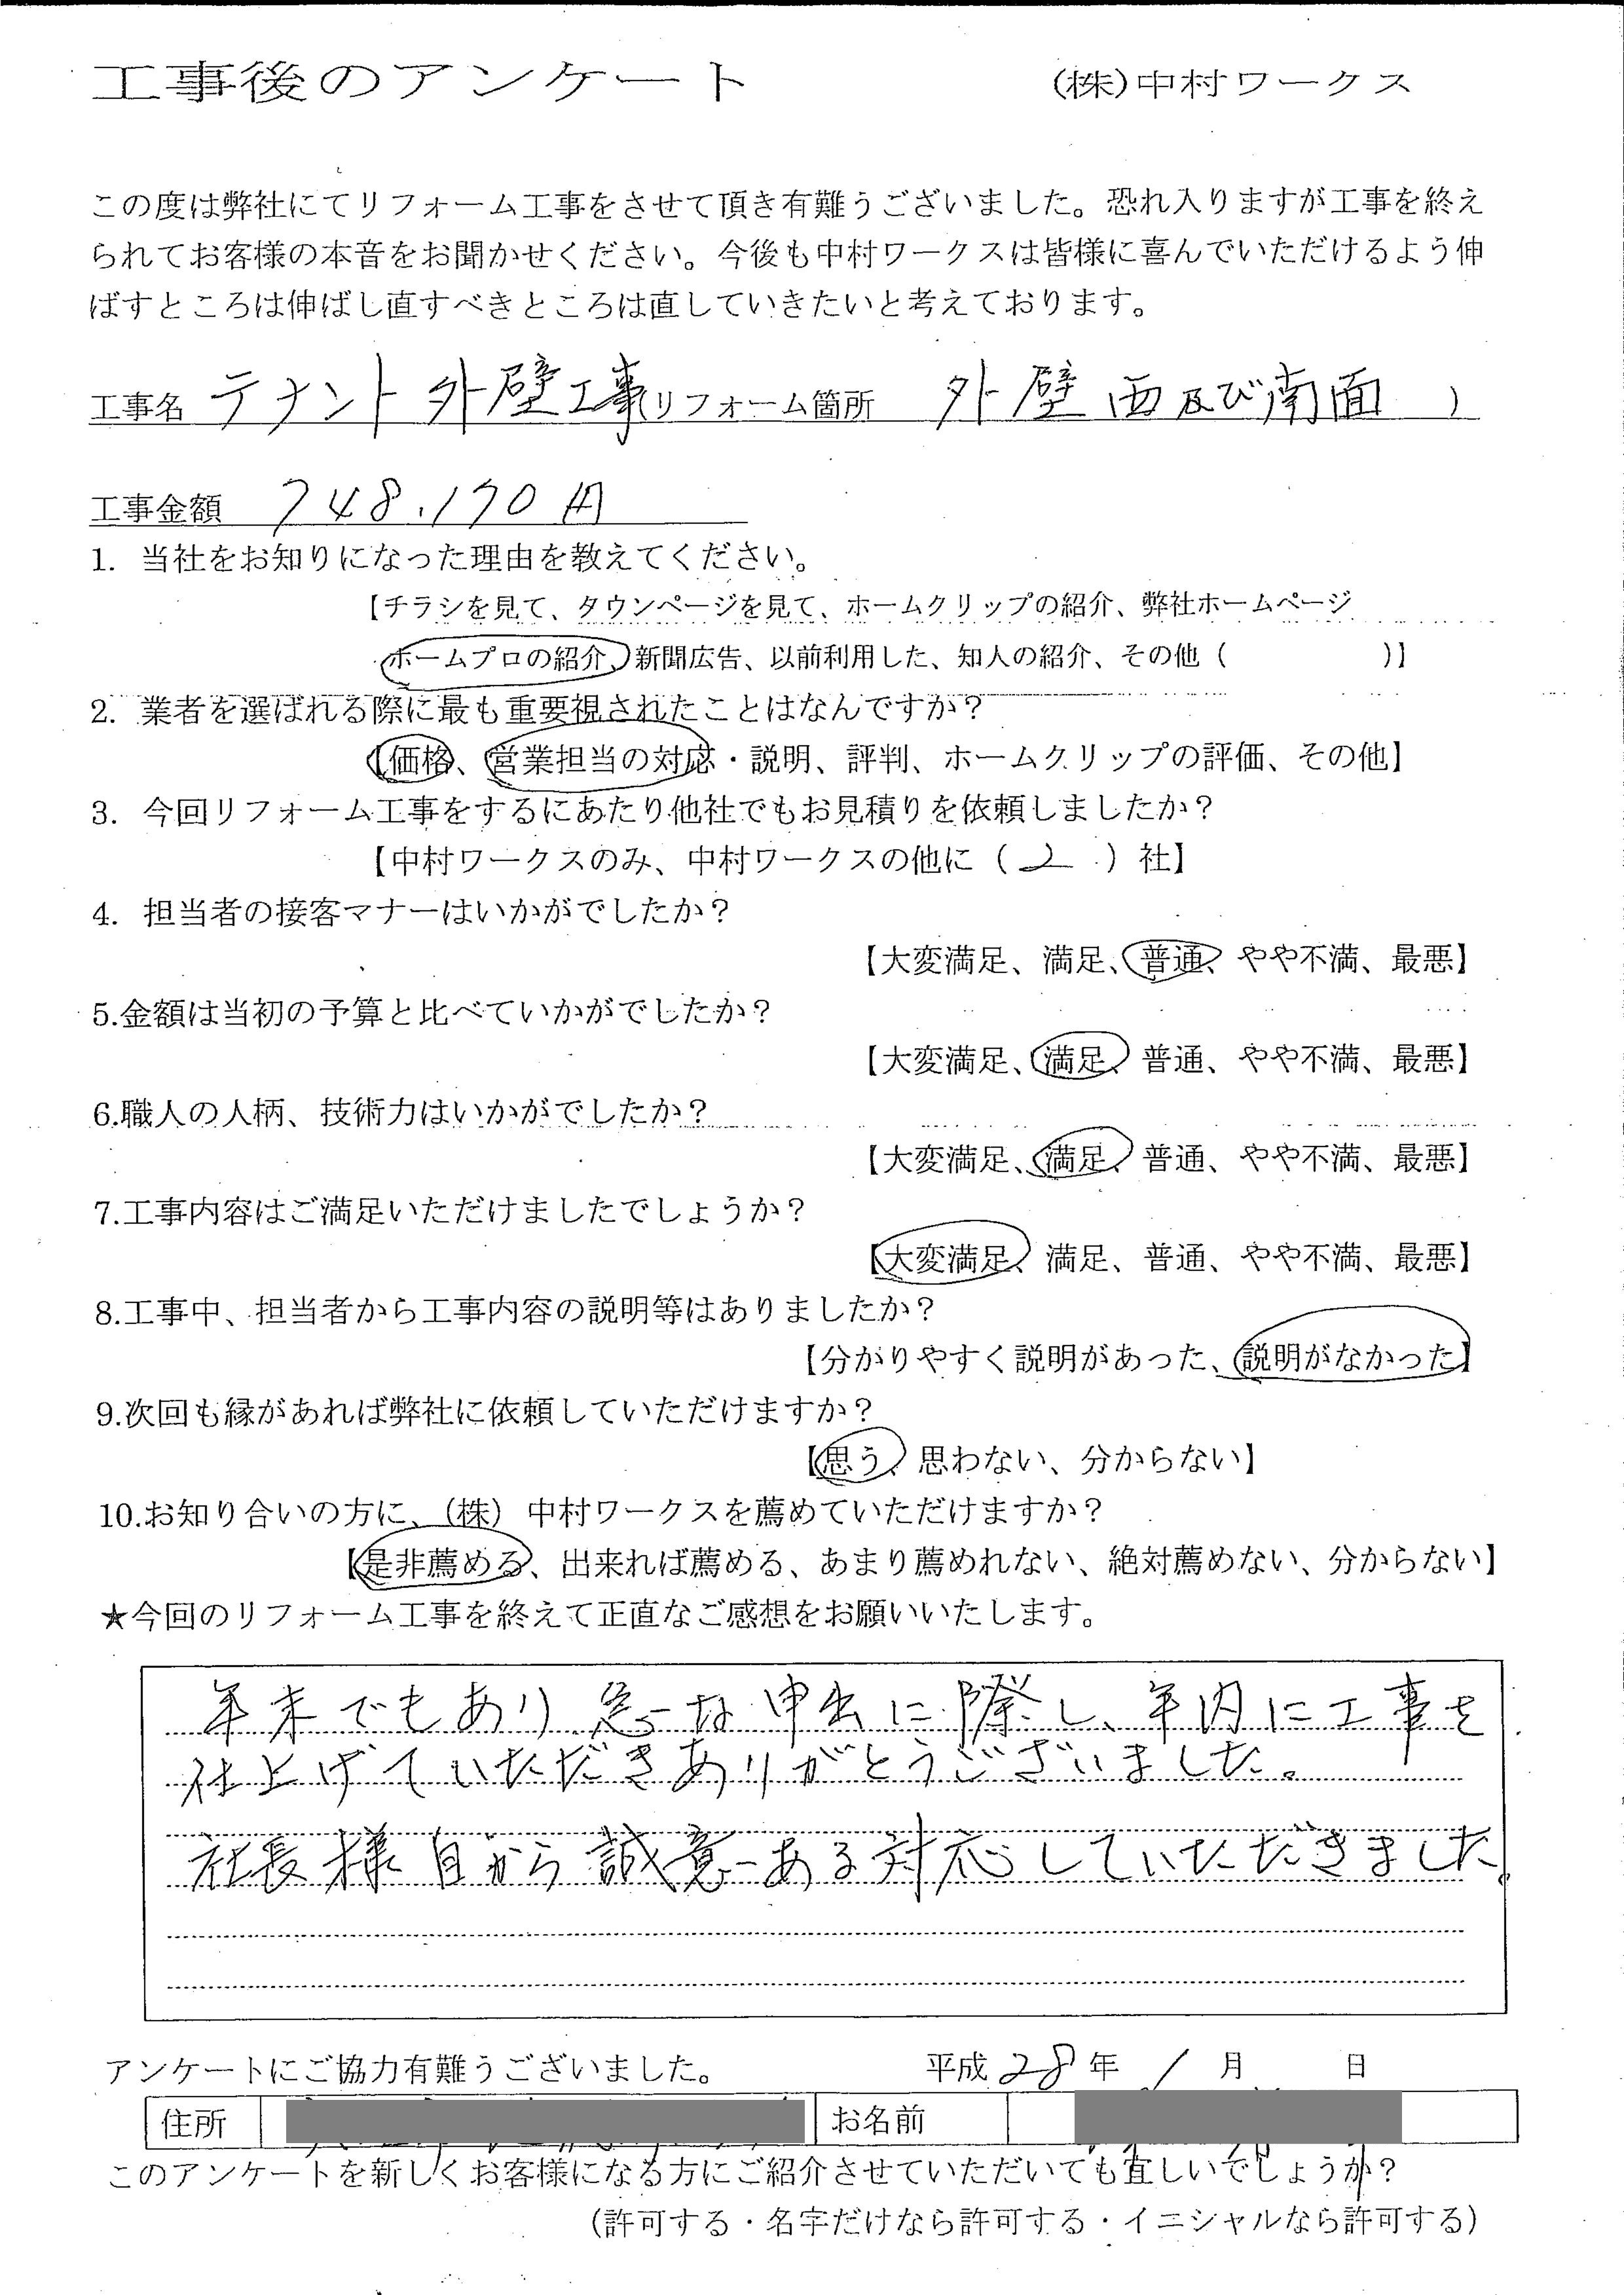 工事後のアンケート　(株)中村ワークス
この度は弊社にてリフォーム工事をさせて頂き有難うございました。恐れ入りますが工事を終え
られてお客様の本音をお聞かせください。今後も中村ワークスは皆様に喜んでいただけるよう伸
ばすところは伸ばし直すべきところは直していきたいと考えております。
工事名 テナント外壁工事(リフォーム箇所 外壁 西及び南面 )
工事金額 748,170円
1. 当社をお知りになった理由を教えてください。
【チラシを見て、タウンページを見て、ホームクリップの紹介、弊社ホームページ
ホームプロの紹介、新聞広告、以前利用した、知人の紹介、その他（　）】
2. 業者を選ばれる際に最も重要視されたことはなんですか？
【価格、営業担当の対応・説明、評判、ホームクリップの評価、その他】
3. 今回リフォーム工事をするにあたり他社でもお見積りを依頼しましたか？
【中村ワークスのみ、中村ワークスの他に（ 2 ）社】
4. 担当者の接客マナーはいかがでしたか？
【大変満足、満足、普通、やや不満、最悪】
5.金額は当初の予算と比べていかがでしたか？
【大変満足、満足、普通、やや不満、最悪】
6.職人の人柄、技術力はいかがでしたか？
【大変満足、満足、普通、やや不満、最悪】
7.工事内容はご満足いただけましたでしょうか？
【大変満足、満足、普通、やや不満、最悪】
8.工事中、担当者から工事内容の説明等はありましたか？
【分かりやすく説明があった、説明がなかった】
9.次回も縁があれば弊社に依頼していただけますか？
【思う、思わない、分からない】
10.お知り合いの方に、（株）中村ワークスを薦めていただけますか？
【是非薦める、出来れば薦める、あまり薦めれない、絶対薦めない、分からない】
★今回のリフォーム工事を終えて正直なご感想をお願いいたします。
年末でもあり急な申出に際し、年内に工事を
仕上げていただきありがとうございました。
社長様自から誠意ある対応していただきました。
アンケートにご協力有難うございました。　平成 28 年 1 月　日
住所　お名前
このアンケートを新しくお客様になる方にご紹介させていただいても宜しいでしょうか？
（許可する・名字だけなら許可する・イニシャルなら許可する）